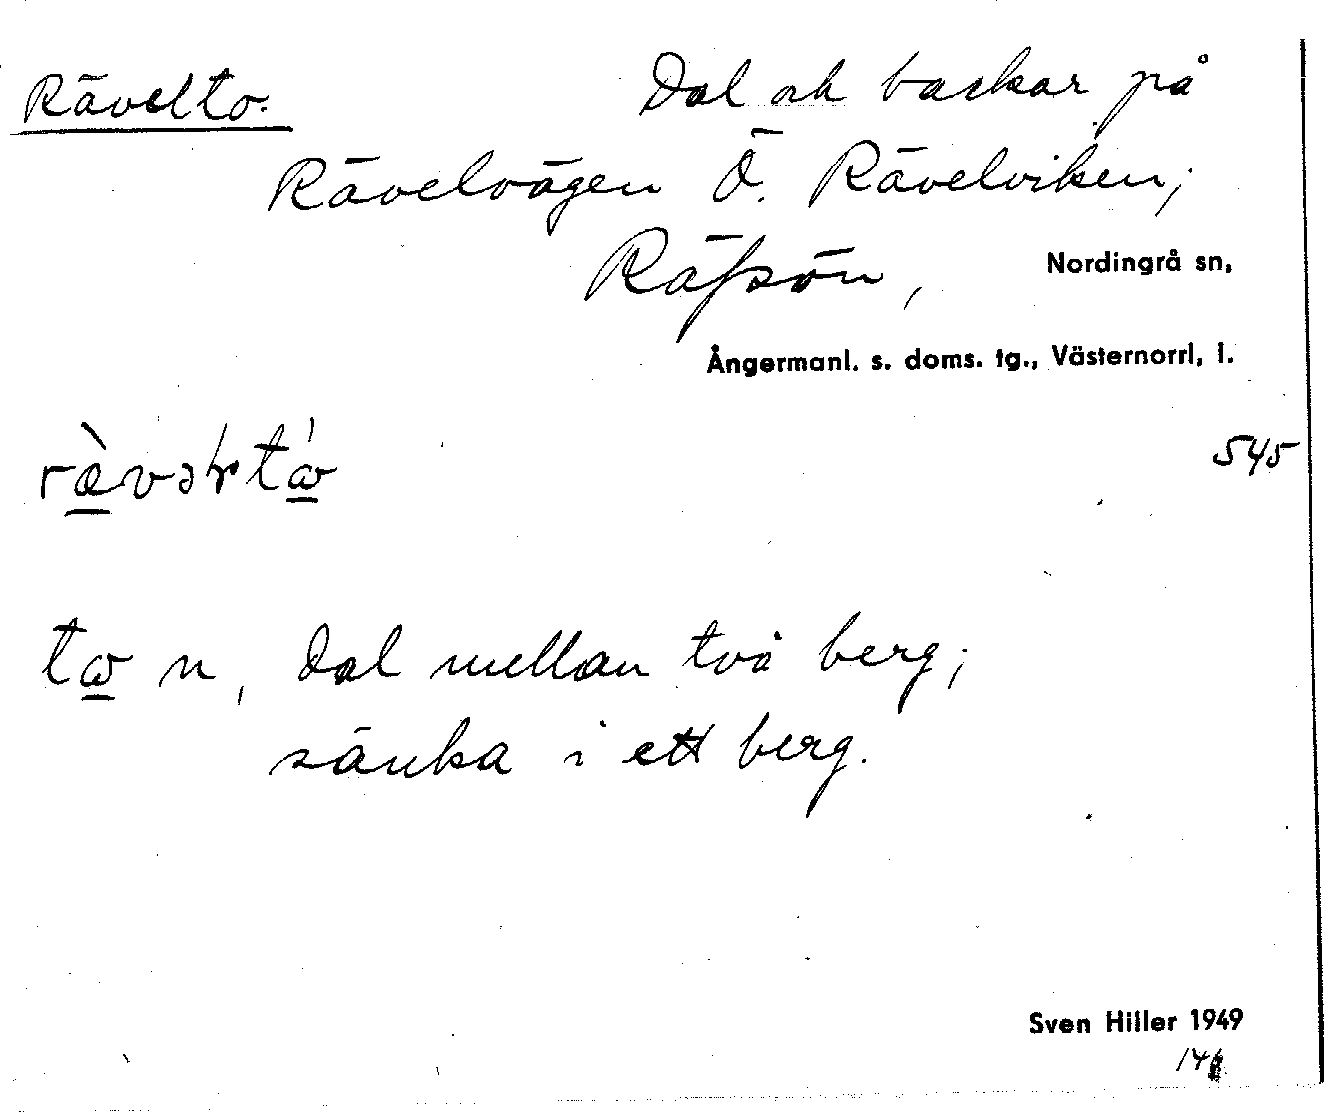 Rävelto.
Dal och backar på
Rävelvägen Ö. Rävelviken;
Räfsön, Nordingrå sn,
Ångermanl. s. doms. tg., Västernorrl, l.
545
n, dal mellan två berg;
sänka i ett berg.
Sven Hiller 1949